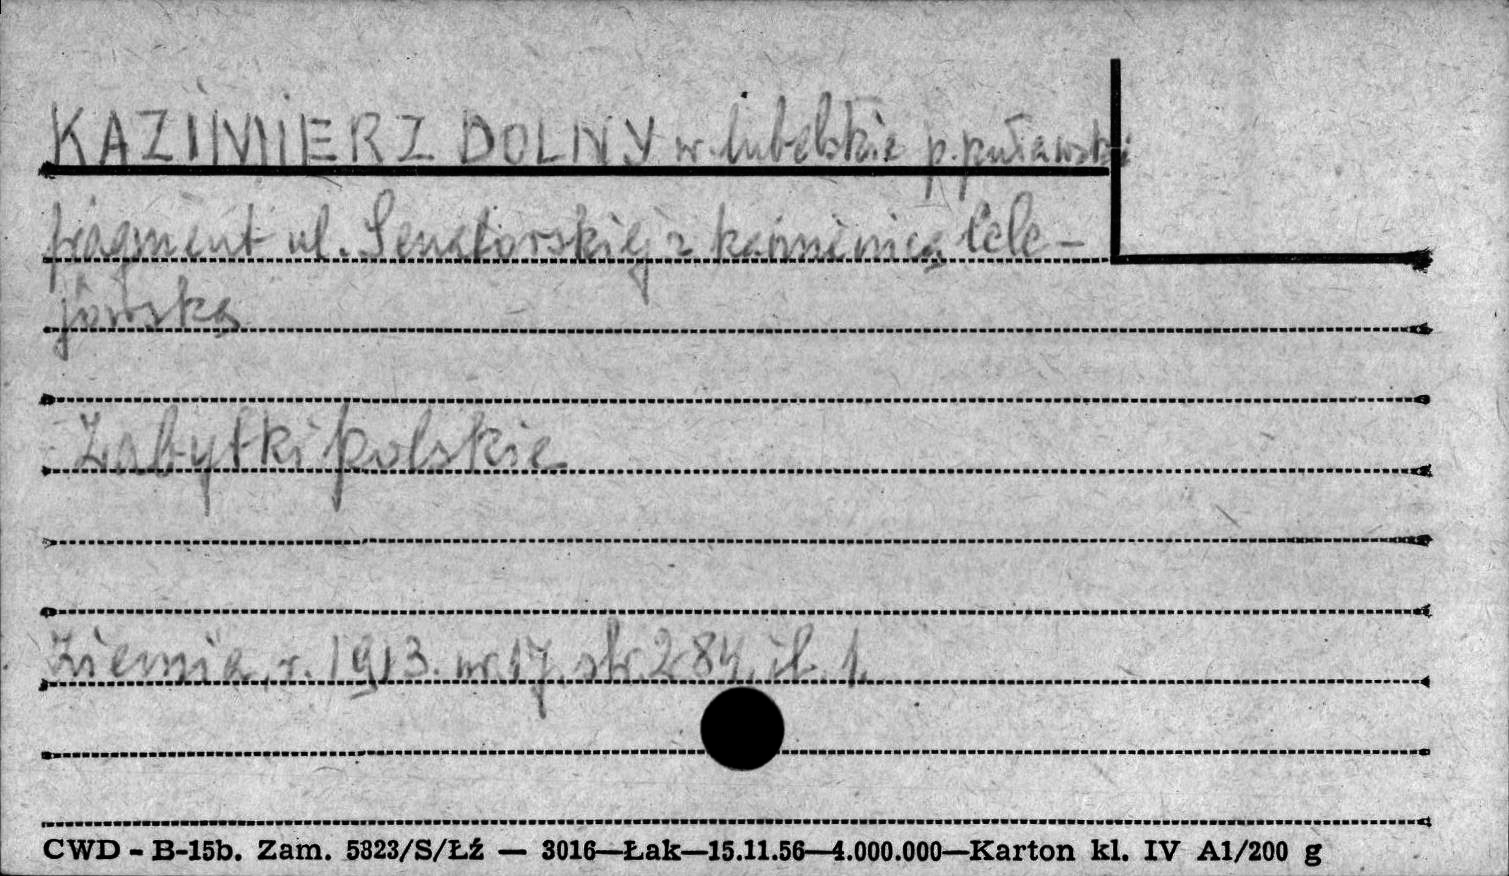 KAZIMIERZ DOLNY w. lubelskie p. puławski
fragment ul. Senatorskiej z kamienicą Cele-
jowską
Zabytki polskie
Ziemia, r. 1913. nr. 17, str. 284, il. 1.
CWD - B-15b. Zam. 5823/S/Łź — 3016—Łak—15.11.56—4.000.000—Karton kl. IV A1/200 g